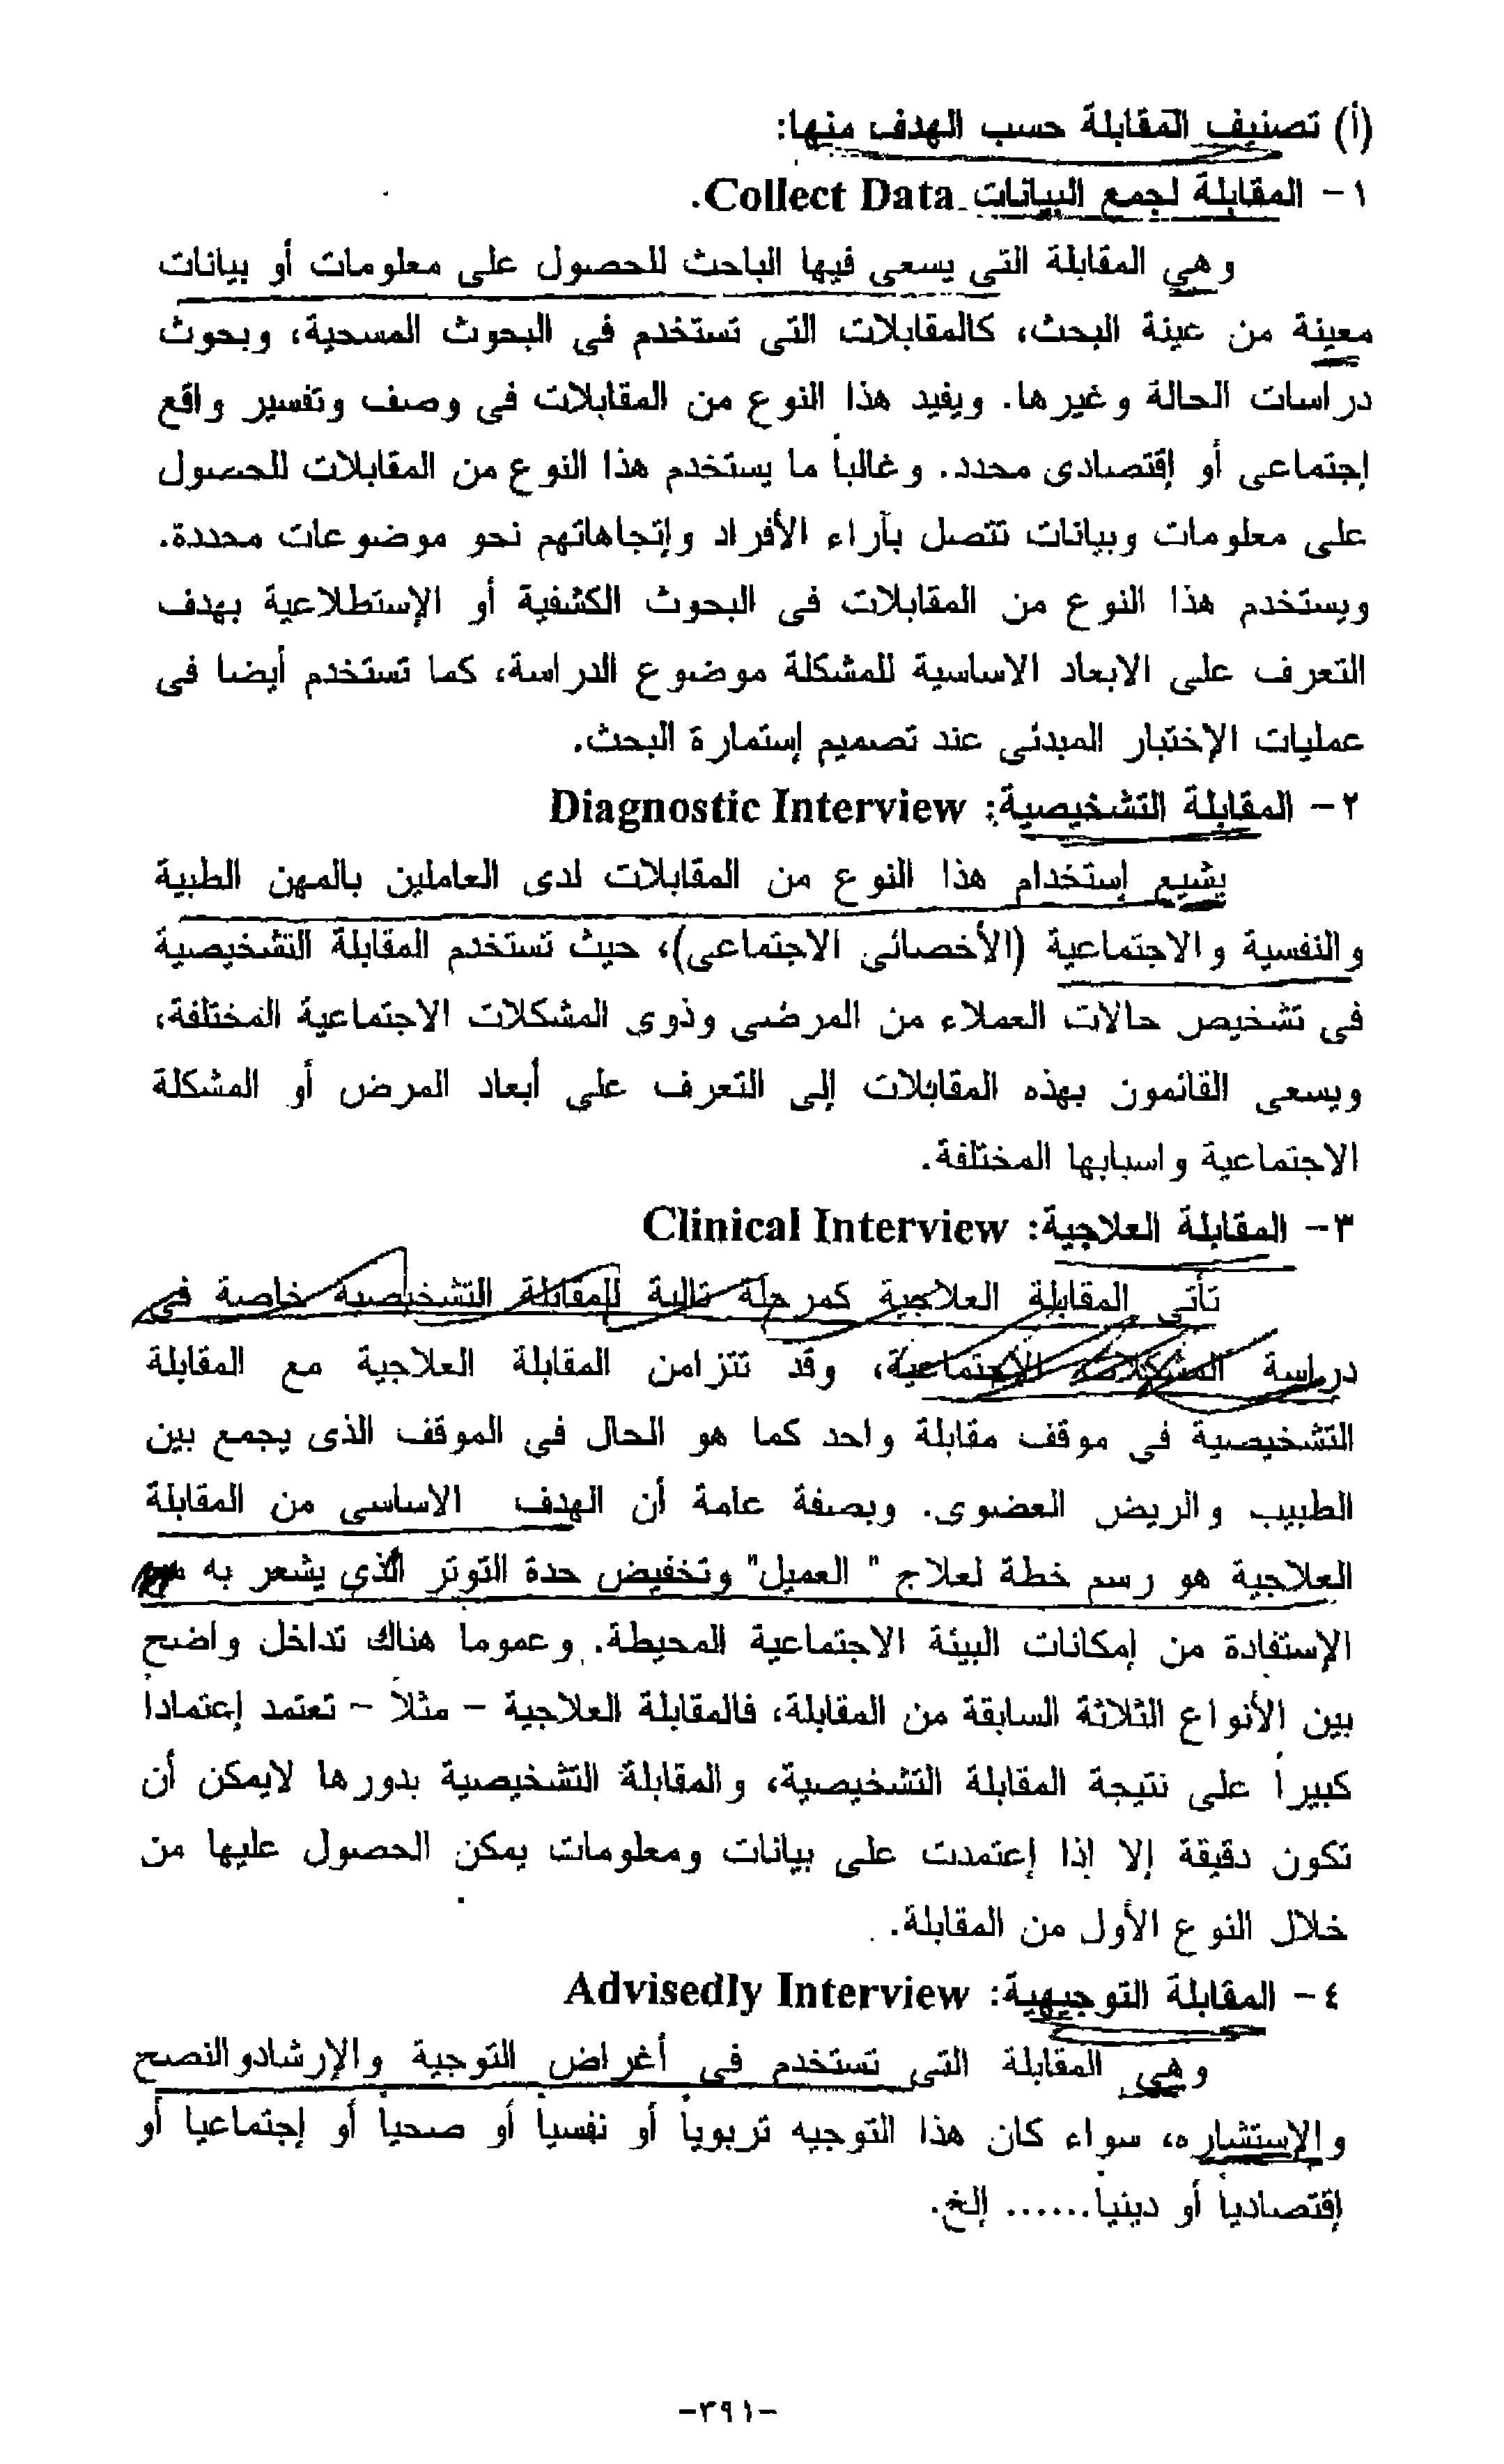 (أ) تصنيف المقابلة حسب الهدف منها:
١- المقابلة لجمع البيانات Collect Data.
وهي المقابلة التى يسعى فيها الباحث للحصول على معلومات أو بيانات
معينة من عينة البحث، كالمقابلات التى تستخدم فى البحوث المسحية، وبحوث
دراسات الحالة وغيرها. ويفيد هذا النوع من المقابلات فى وصف وتفسير واقع
إجتماعى أو إقتصادى محدد. وغالباً ما يستخدم هذا النوع من المقابلات للحصول
على معلومات وبيانات تتصل بآراء الأفراد وإتجاهاتهم نحو موضوعات محددة.
ويستخدم هذا النوع من المقابلات فى البحوث الكشفية أو الإستطلاعية بهدف
التعرف على الابعاد الاساسية للمشكلة موضوع الدراسة، كما تستخدم أيضا فى
عمليات الإختبار المبدئى عند تصميم إستمارة البحث.
٢- المقابلة التشخيصية: Diagnostic Interview
يشيع إستخدام هذا النوع من المقابلات لدى العاملين بالمهن الطبية
والنفسية والاجتماعية (الأخصائي الاجتماعى)، حيث تستخدم المقابلة التشخيصية
فى تشخيص حالات العملاء من المرضى وذوي المشكلات الاجتماعية المختلفة،
ويسعى القائمون بهذه المقابلات إلى التعرف على أبعاد المرض أو المشكلة
الاجتماعية واسبابها المختلفة.
٣- المقابلة العلاجية: Clinical Interview
تأتى المقابلة العلاجية كمرحلة تالية للمقابلة التشخيصية خاصة فى
دراسة المشكلات الإجتماعية، وقد تتزامن المقابلة العلاجية مع المقابلة
التشخيصية فى موقف مقابلة واحد كما هو الحال فى الموقف الذى يجمع بين
الطبيب والريض العضوى. وبصفة عامة أن الهدف الاساسى من المقابلة
العلاجية هو رسم خطة لعلاج " العميل" وتخفيض حدة التوتر الذي يشعر به مع
الإستفادة من إمكانات البيئة الاجتماعية المحيطة. وعموما هناك تداخل واضح
بين الأنواع الثلاثة السابقة من المقابلة، فالمقابلة العلاجية - مثلاً - تعتمد إعتماداً
كبيراً على نتيجة المقابلة التشخيصية، والمقابلة التشخيصية بدورها لايمكن أن
تكون دقيقة إلا إذا إعتمدت على بيانات ومعلومات يمكن الحصول عليها من
خلال النوع الأول من المقابلة.
٤- المقابلة التوجيهية: Advisedly Interview
وهي المقابلة التى تستخدم فى أغراض التوجية والإرشادوالنصح
والإستشاره، سواء كان هذا التوجيه تربوياً أو نفسياً أو صحياً أو إجتماعيا أو
إقتصادياً أو دينياً...... إلخ.
-٣٩١-